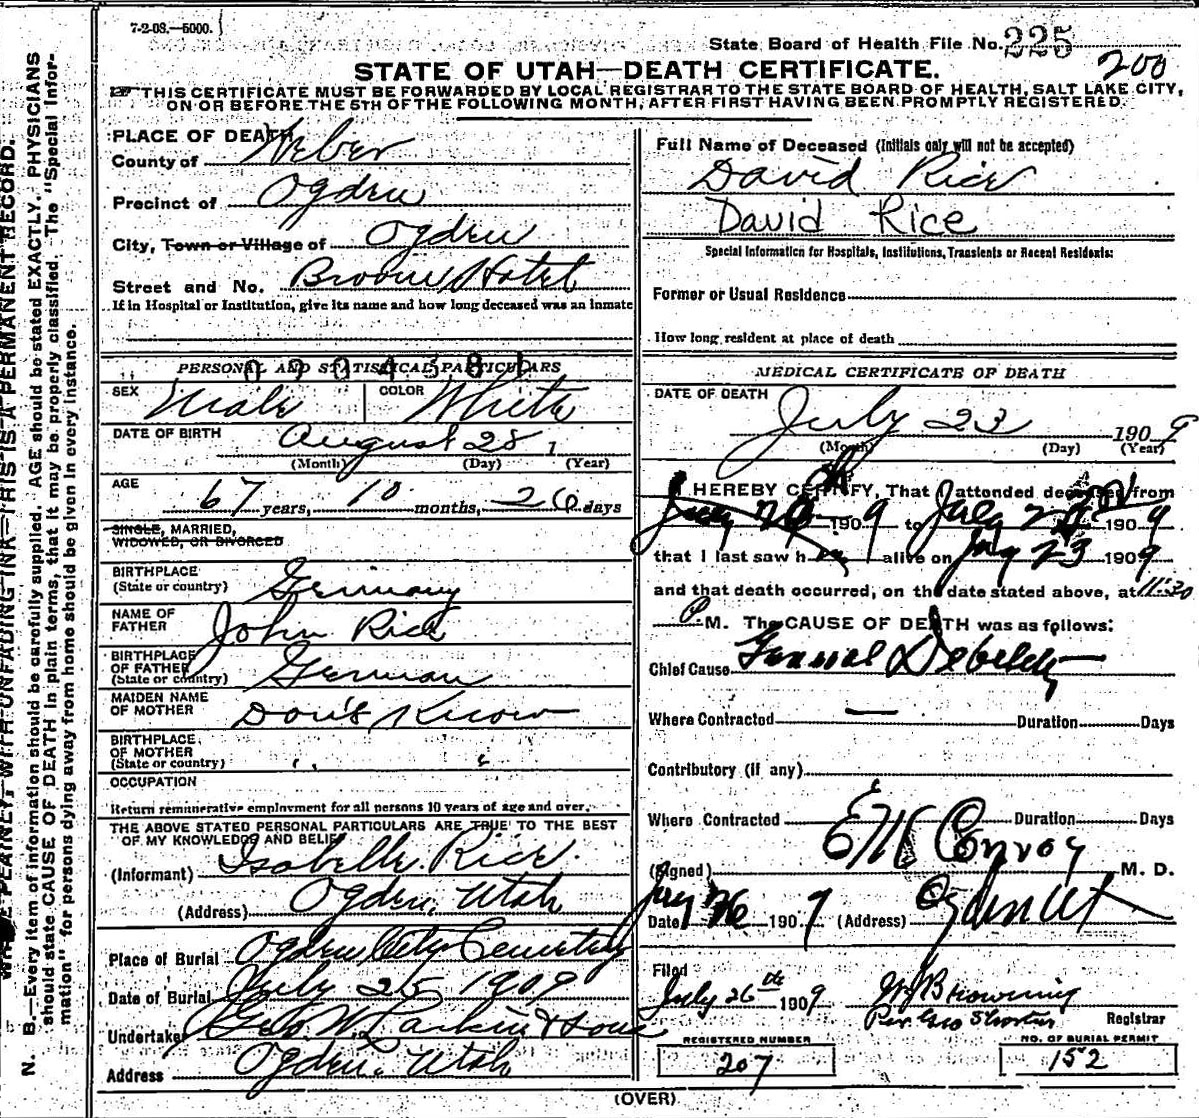 7-2-08.—5000.
State Board of Health File No. 225
200
STATE OF UTAH—DEATH CERTIFICATE.
THIS CERTIFICATE MUST BE FORWARDED BY LOCAL REGISTRAR TO THE STATE BOARD OF HEALTH, SALT LAKE CITY,
ON OR BEFORE THE 5TH OF THE FOLLOWING MONTH, AFTER FIRST HAVING BEEN PROMPTLY REGISTERED.
PLACE OF DEATH
County of Weber
Precinct of Ogden
City, Town or Village of Ogden
Street and No. Broom Hotel
If in Hospital or Institution, give its name and how long deceased was an inmate
PERSONAL AND STATISTICAL PARTICULARS
SEX Male COLOR White
DATE OF BIRTH August 28 1
(Month) (Day) (Year)
AGE 67 years, 10 months, 26 days
SINGLE, MARRIED,
WIDOWED, OR DIVORCED
BIRTHPLACE
(State or country) Germany
NAME OF
FATHER John Rice
BIRTHPLACE
OF FATHER
(State or country) German
MAIDEN NAME
OF MOTHER Don't Know
BIRTHPLACE
OF MOTHER
(State or country) " "
OCCUPATION
Return remunerative employment for all persons 10 years of age and over.
THE ABOVE STATED PERSONAL PARTICULARS ARE TRUE TO THE BEST
OF MY KNOWLEDGE AND BELIEF
(Informant) Isabelle Rice
(Address) Ogden, Utah
Place of Burial Ogden City Cemetery
Date of Burial July 25 1909
Undertaker Geo W. Larkin & Sons
Address Ogden, Utah
Full Name of Deceased (Initials only will not be accepted)
David Rice
David Rice
Special Information for Hospitals, Institutions, Transients or Recent Residents:
Former or Usual Residence
How long resident at place of death
MEDICAL CERTIFICATE OF DEATH
DATE OF DEATH
July 23 1909
(Month) (Day) (Year)
I HEREBY CERTIFY, That I attended deceased from
1909 to July 1909
that I last saw h alive on July 23 1909
and that death occurred, on the date stated above, at 11:30
P M. The CAUSE OF DEATH was as follows:
Chief Cause General Debility
Where Contracted — Duration Days
Contributory (if any)
Where Contracted Duration Days
(Signed) E M Conroy M. D.
Date July 26 1909 (Address) Ogden Ut
Filed
July 26th 1909 Browning
Per Geo Shorten Registrar
REGISTERED NUMBER
207
NO. OF BURIAL PERMIT
152
(OVER)
N. B.—Every item of information should be carefully supplied. AGE should be stated EXACTLY. PHYSICIANS
should state CAUSE OF DEATH in plain terms, that it may be properly classified. The "Special Infor-
mation" for persons dying away from home should be given in every instance.
PLAINLY, WITH UNFADING INK—THIS IS A PERMANENT RECORD.